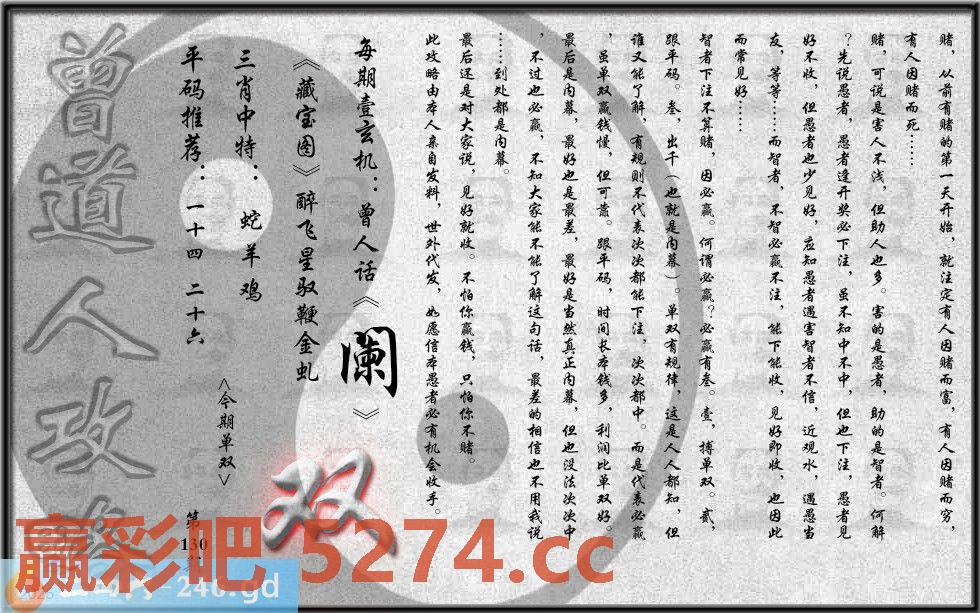 赌，从前有赌的第一天开始，就注定有人因赌而富，有人因赌而穷，
有人因赌而死……
赌，可说是害人不浅，但助人也多。害的是愚者，助的是智者。何解
？先说愚者，愚者逢开奖必下注，虽不知中不中，但也下注，愚者见
好不收，但愚者也少见好，应知愚者遇害智者不信，近观水，遇愚当
友，等等……而智者，不智必赢不注，能下能收，见好即收，也因此
而常见好……
智者下注不算赌，因必赢。何谓必赢？必赢有叁。壹，搏单双。贰，
跟平码。叁，出千（也就是内幕）。单双有规律，这是人人都知，但
谁又能了解，有规则不代表次次都能下注，次次都中。而是代表必赢
，虽单双赢钱慢，但可靠。跟平码，时间长本钱多，利润比单双好。
最后是内幕，最好也是最差，最好是当然真正内幕，但也没法次次中
，不过也必赢，不知大家能不能了解这句话，最差的相信也不用我说
……到处都是内幕。
最后还是对大家说，见好就收。不怕你赢钱，只怕你不赌。
此攻略由本人亲自发料，世外代发，如愿信本愚者必有机会收手。
每期壹玄机：曾人话《阑》
《藏宝图》醉飞星驭鞭金虬
三肖中特：蛇羊鸡
平码推荐：一十四 二十六
<今期单双>
双
第130
曾道人攻
赢彩吧 5274.cc
246.gd